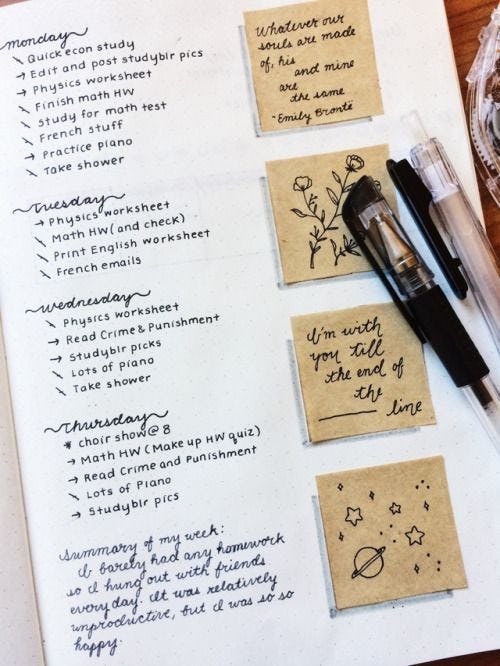 monday
\ Quick econ study
→ Edit and post studyblr pics
→ Physics worksheet
\ Finish math HW
\ Study for math test
\ French stuff
→ Practice piano
\ Take shower
Tuesday
→ Physics worksheet
\ Math HW (and check)
\ Print English worksheet
\ French emails
wednesday
\ Physics worksheet
→ Read Crime & Punishment
→ Studyblr picks
\ Lots of Piano
\ Take shower
Thursday
* choir show @ 8
→ Math HW (Make up HW quiz)
→ Read Crime and Punishment
\ Lots of Piano
→ Studyblr pics
Summary of my week:
I barely had any homework
so I hung out with friends
every day. It was relatively
unproductive, but I was so so
happy.
Whatever our
souls are made
of, his
and mine
are
the same
-Emily Brontë
I'm with
you till
the end of
the
______ line